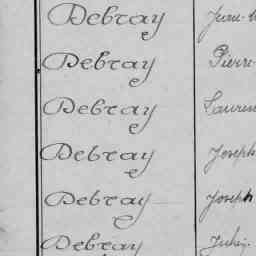 Debray Jean
Debray Pierre
Debray Laurent
Debray Joseph
Debray Joseph
Debray